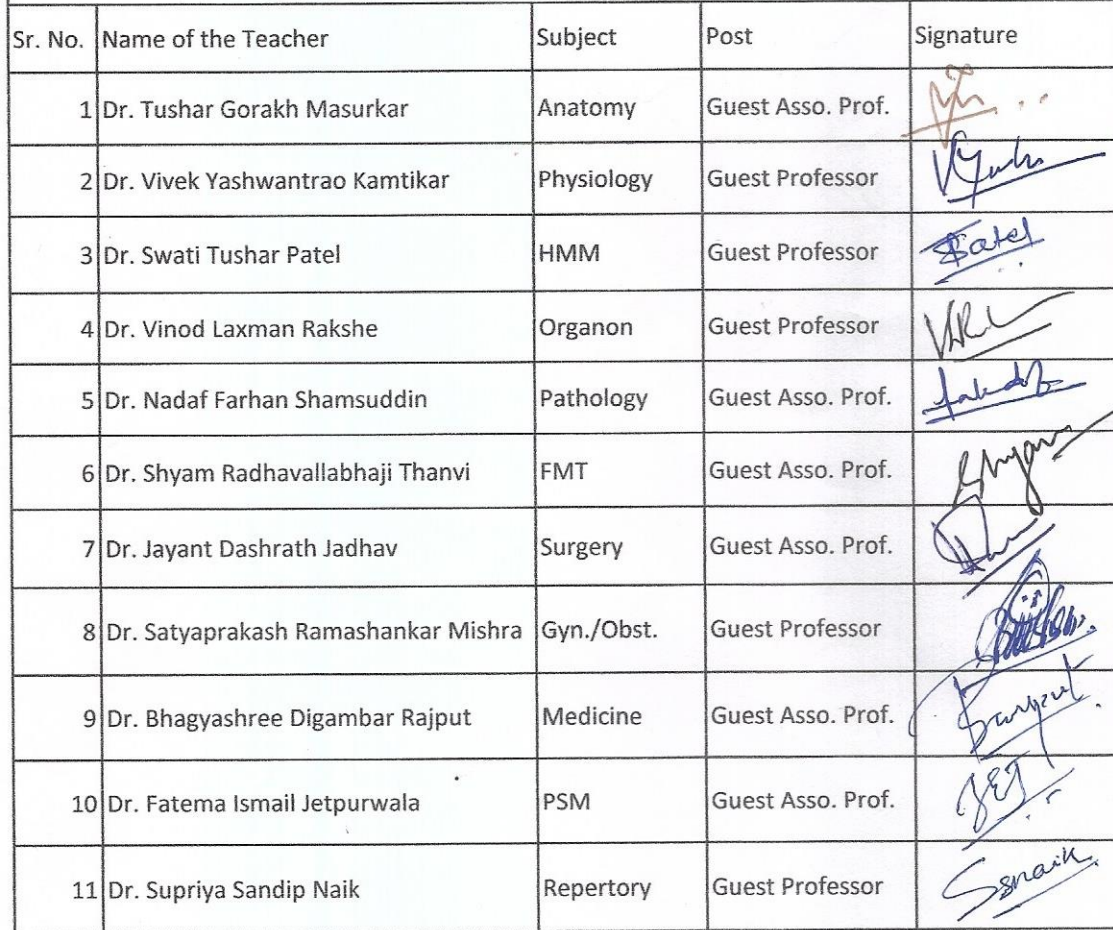 Sr. No. Name of the Teacher Subject Post Signature
1 Dr. Tushar Gorakh Masurkar Anatomy Guest Asso. Prof.
2 Dr. Vivek Yashwantrao Kamtikar Physiology Guest Professor
3 Dr. Swati Tushar Patel HMM Guest Professor
4 Dr. Vinod Laxman Rakshe Organon Guest Professor
5 Dr. Nadaf Farhan Shamsuddin Pathology Guest Asso. Prof.
6 Dr. Shyam Radhavallabhaji Thanvi FMT Guest Asso. Prof. Shyam
7 Dr. Jayant Dashrath Jadhav Surgery Guest Asso. Prof.
8 Dr. Satyaprakash Ramashankar Mishra Gyn./Obst. Guest Professor
9 Dr. Bhagyashree Digambar Rajput Medicine Guest Asso. Prof.
10 Dr. Fatema Ismail Jetpurwala PSM Guest Asso. Prof.
11 Dr. Supriya Sandip Naik Repertory Guest Professor Ssnaik